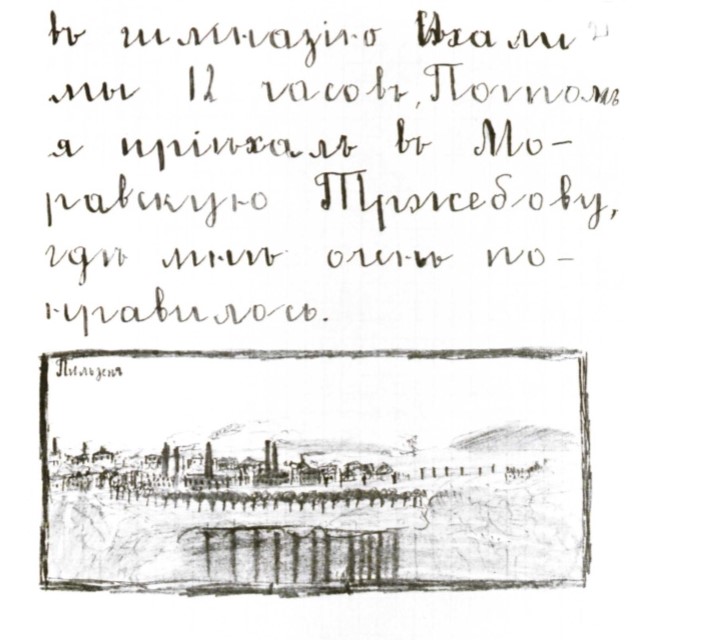 въ гимназію Ѣхали
мы 12 часовъ, Потомъ
я пріѣхалъ въ Мо-
равскую Тржебову,
гдѣ мнѣ очень по-
нравилось.
Пильзенъ